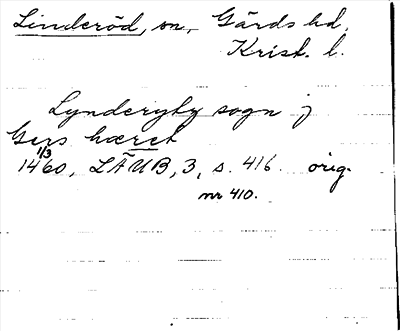 Linderöd, sn, Gärds hd,
Krist. l.
Lynderyth sogn j
Gers hæret
1/3
1460, LÄUB, 3, s. 416. orig.
nr 410.